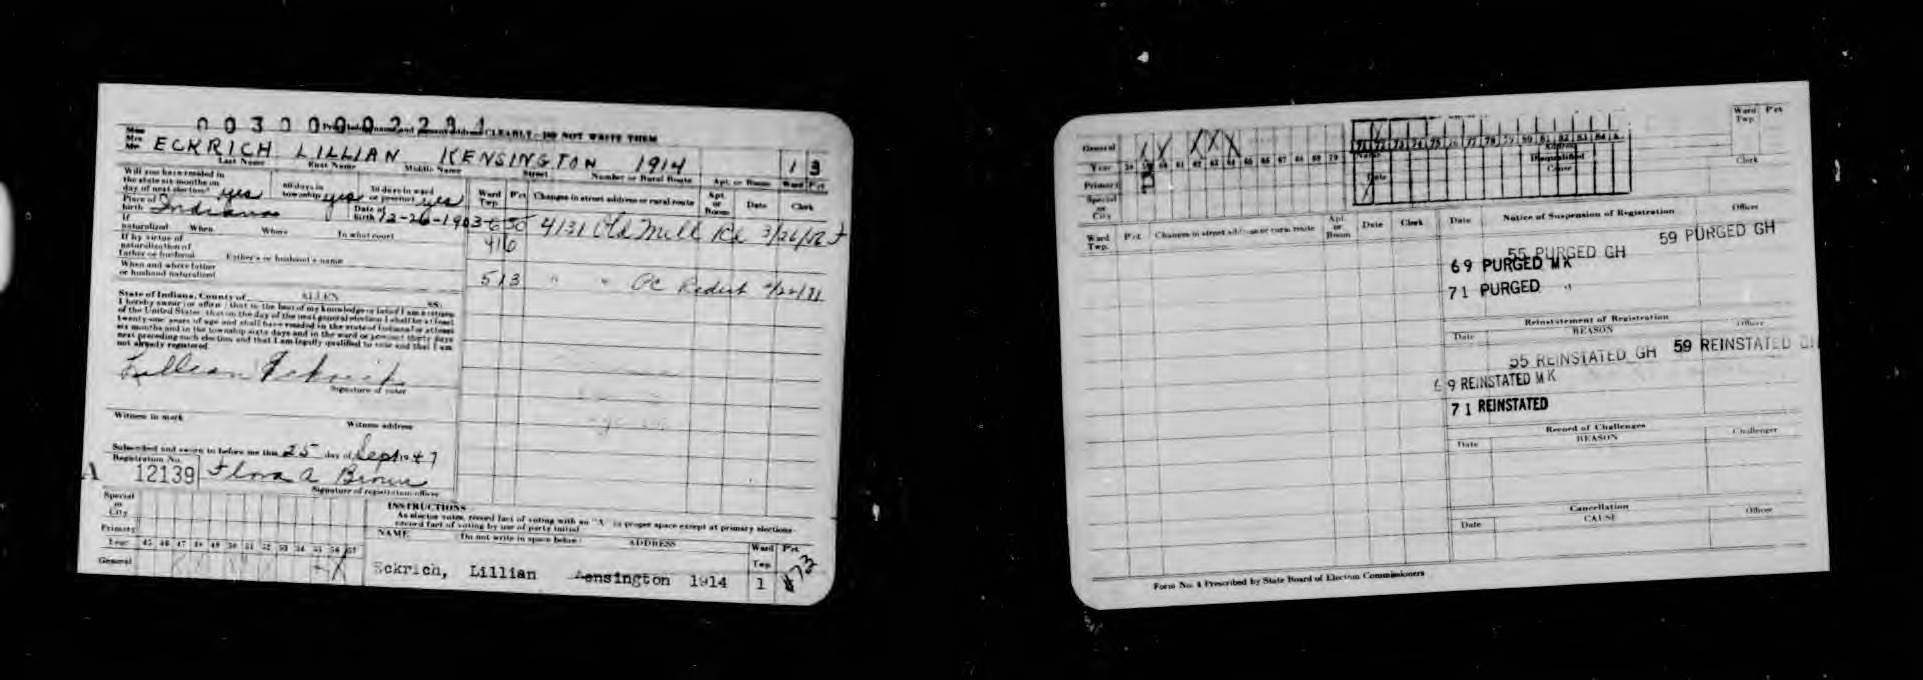 00300002291
Print below name and present address CLEARLY - DO NOT WRITE THEM
Miss
Mrs
Mr ECKRICH LILLIAN KENSINGTON 1914 1 3
Last Name First Name Middle Name Street Number or Rural Route Apt. or Room Ward Pct
Will you have resided in
the state six months on
day of next election? yes 60 days in
township yes 30 days in ward
or precinct yes
Ward
Twp. Pct Changes in street address or rural route Apt.
or
Room Date Clerk
Place of
birth Indiana Date of
birth 12-26-1903
6 50 4131 Old Mill Rd 3/26/56
416
If
naturalized When Where In what court
If by virtue of
naturalization of
Father or husband Father's or husband's name
When and where father
or husband naturalized
513 " " PC Redist 4/22/71
State of Indiana, County of ALLEN SS:
I hereby swear (or affirm) that to the best of my knowledge or belief I am a citizen
of the United States, that on the day of the next general election I shall be at least
twenty-one years of age and shall have resided in the state of Indiana for at least
six months and in the township sixty days and in the ward or precinct thirty days
next preceding such election and that I am legally qualified to vote and that I am
not already registered.
Lillian Eckrich
Signature of voter
Witness to mark Witness address
Subscribed and sworn to before me this 25 day of Sept 1947
Registration No.
A 12139 Flora A Brown
Signature of registration officer
Special
or
City
Primary
Year 45 46 47 48 49 50 51 52 53 54 55 56 57
General
INSTRUCTIONS
As elector votes, record fact of voting with an "X" in proper space except at primary elections
record fact of voting by use of party initial
NAME (Do not write in space below) ADDRESS Ward
Twp. Pct.
Eckrich, Lillian Kensington 1914 1 73
General
Year 59 60 61 62 63 64 65 66 67 68 69 70
Primary
Special
or
City
71 72 73 74 75 76 77 78 79 80 81 82 83 84
Name Address
Disqualified
Date Cause
Ward
Twp. Pct
Clerk
Ward
Twp. Pct. Changes in street address or rural route Apt.
or
Room Date Clerk
Date Notice of Suspension of Registration Officer
55 PURGED GH 59 PURGED GH
69 PURGED MK
71 PURGED "
Reinstatement of Registration
Date REASON Officer
55 REINSTATED GH 59 REINSTATED
69 REINSTATED MK
71 REINSTATED
Record of Challenges
Date REASON Challenger
Cancellation
Date CAUSE Officer
Form No. 4 Prescribed by State Board of Election Commissioners